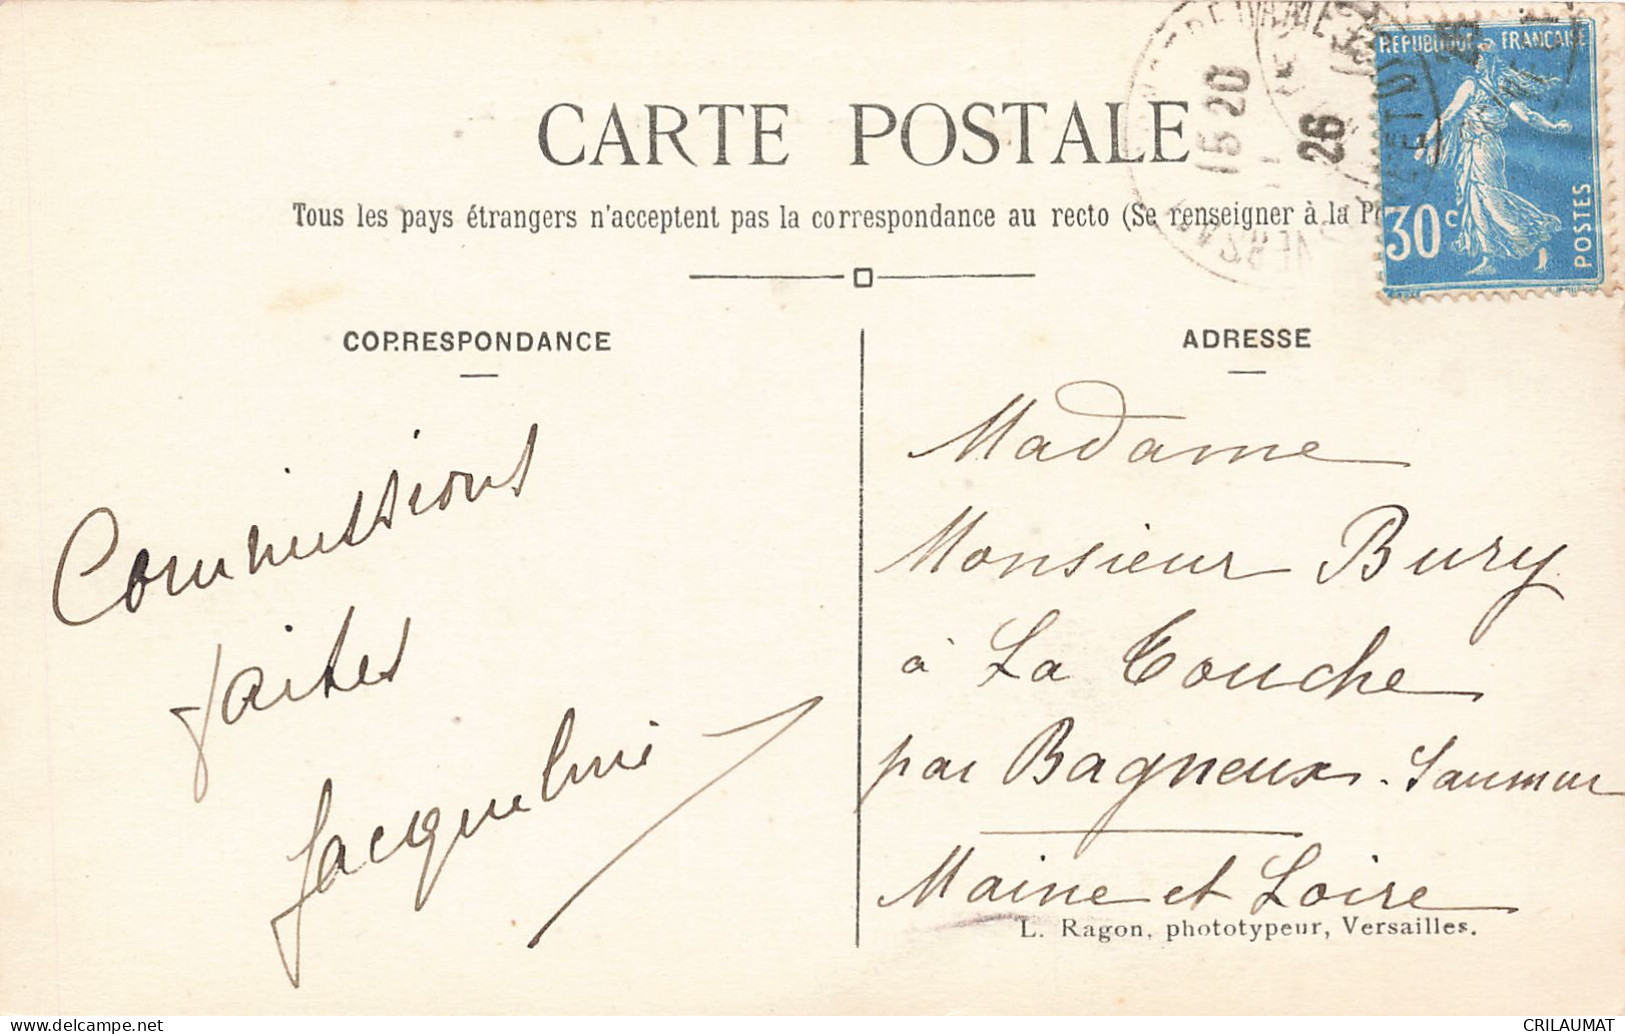 CARTE POSTALE
Tous les pays étrangers n'acceptent pas la correspondance au recto (Se renseigner à la
RÉPUBLIQUE FRANÇAISE
30c
POSTES
15 20
26
CORRESPONDANCE
Commissions
faites
Jacqueline
ADRESSE
Madame
Monsieur Bury
à La Touche
par Bagneux - Saumur
Maine et Loire
L. Ragon, phototypeur, Versailles.
CRILAUMAT